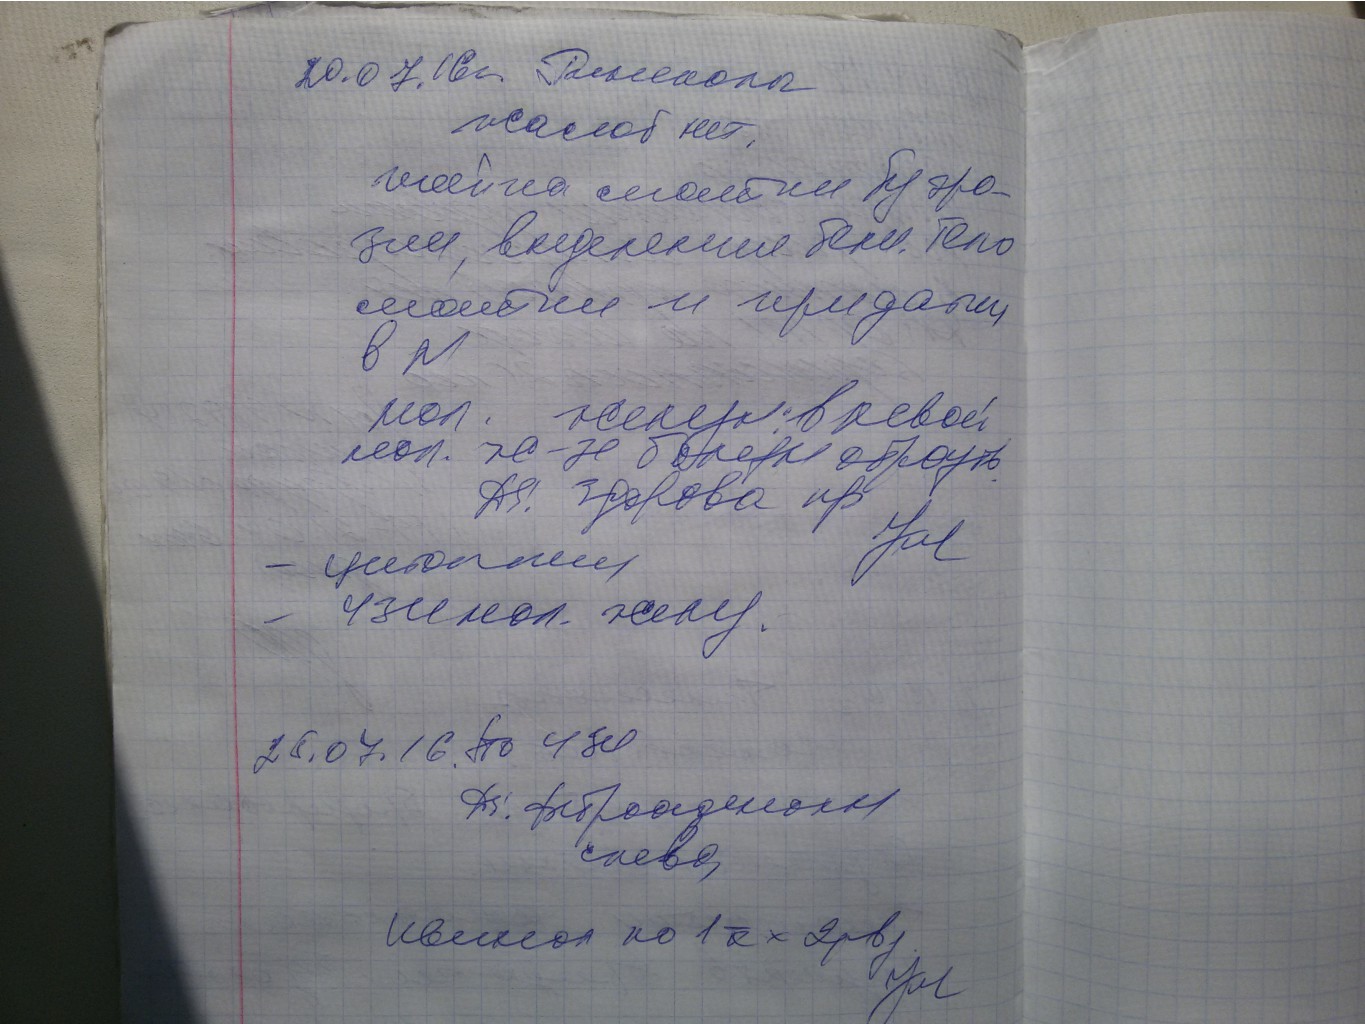 20.07.16г. Гинеколог
жалоб нет.
шейка матки б/у эро-
зии, выделения бели. Тело
матки и придатки
в N
мол. желез: в левой
мол. ж-з
DS: Здорова пр
- цитология
- УЗИ мол. желез.
25.07.16. По УЗИ
DS: Фиброаденома
слева,
по 1т х 2р в д.